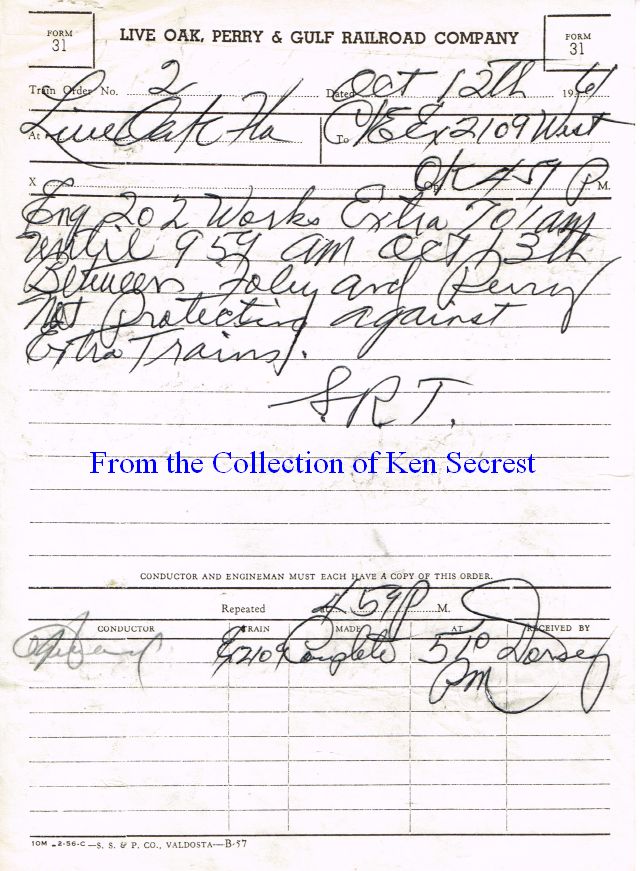 FORM 31
LIVE OAK, PERRY & GULF RAILROAD COMPANY
FORM 31
Train Order No. 2 Dated Oct 12th 1961
At Live Oak Fla To C&E Ex 2109 West
X OK 459 P M.
Eng 202 Works Extra 701 am
until 959 am Oct 13th
Between Foley and Perry
Not Protecting against
Extra Trains.
S.R.T.
From the Collection of Ken Secrest
CONDUCTOR AND ENGINEMAN MUST EACH HAVE A COPY OF THIS ORDER.
Repeated at 459 P M.
CONDUCTOR TRAIN MADE AT RECEIVED BY
Ex 2109 Complete 510 PM Dorsey
10M -2-56-C—S. S. & P. CO., VALDOSTA—B-57